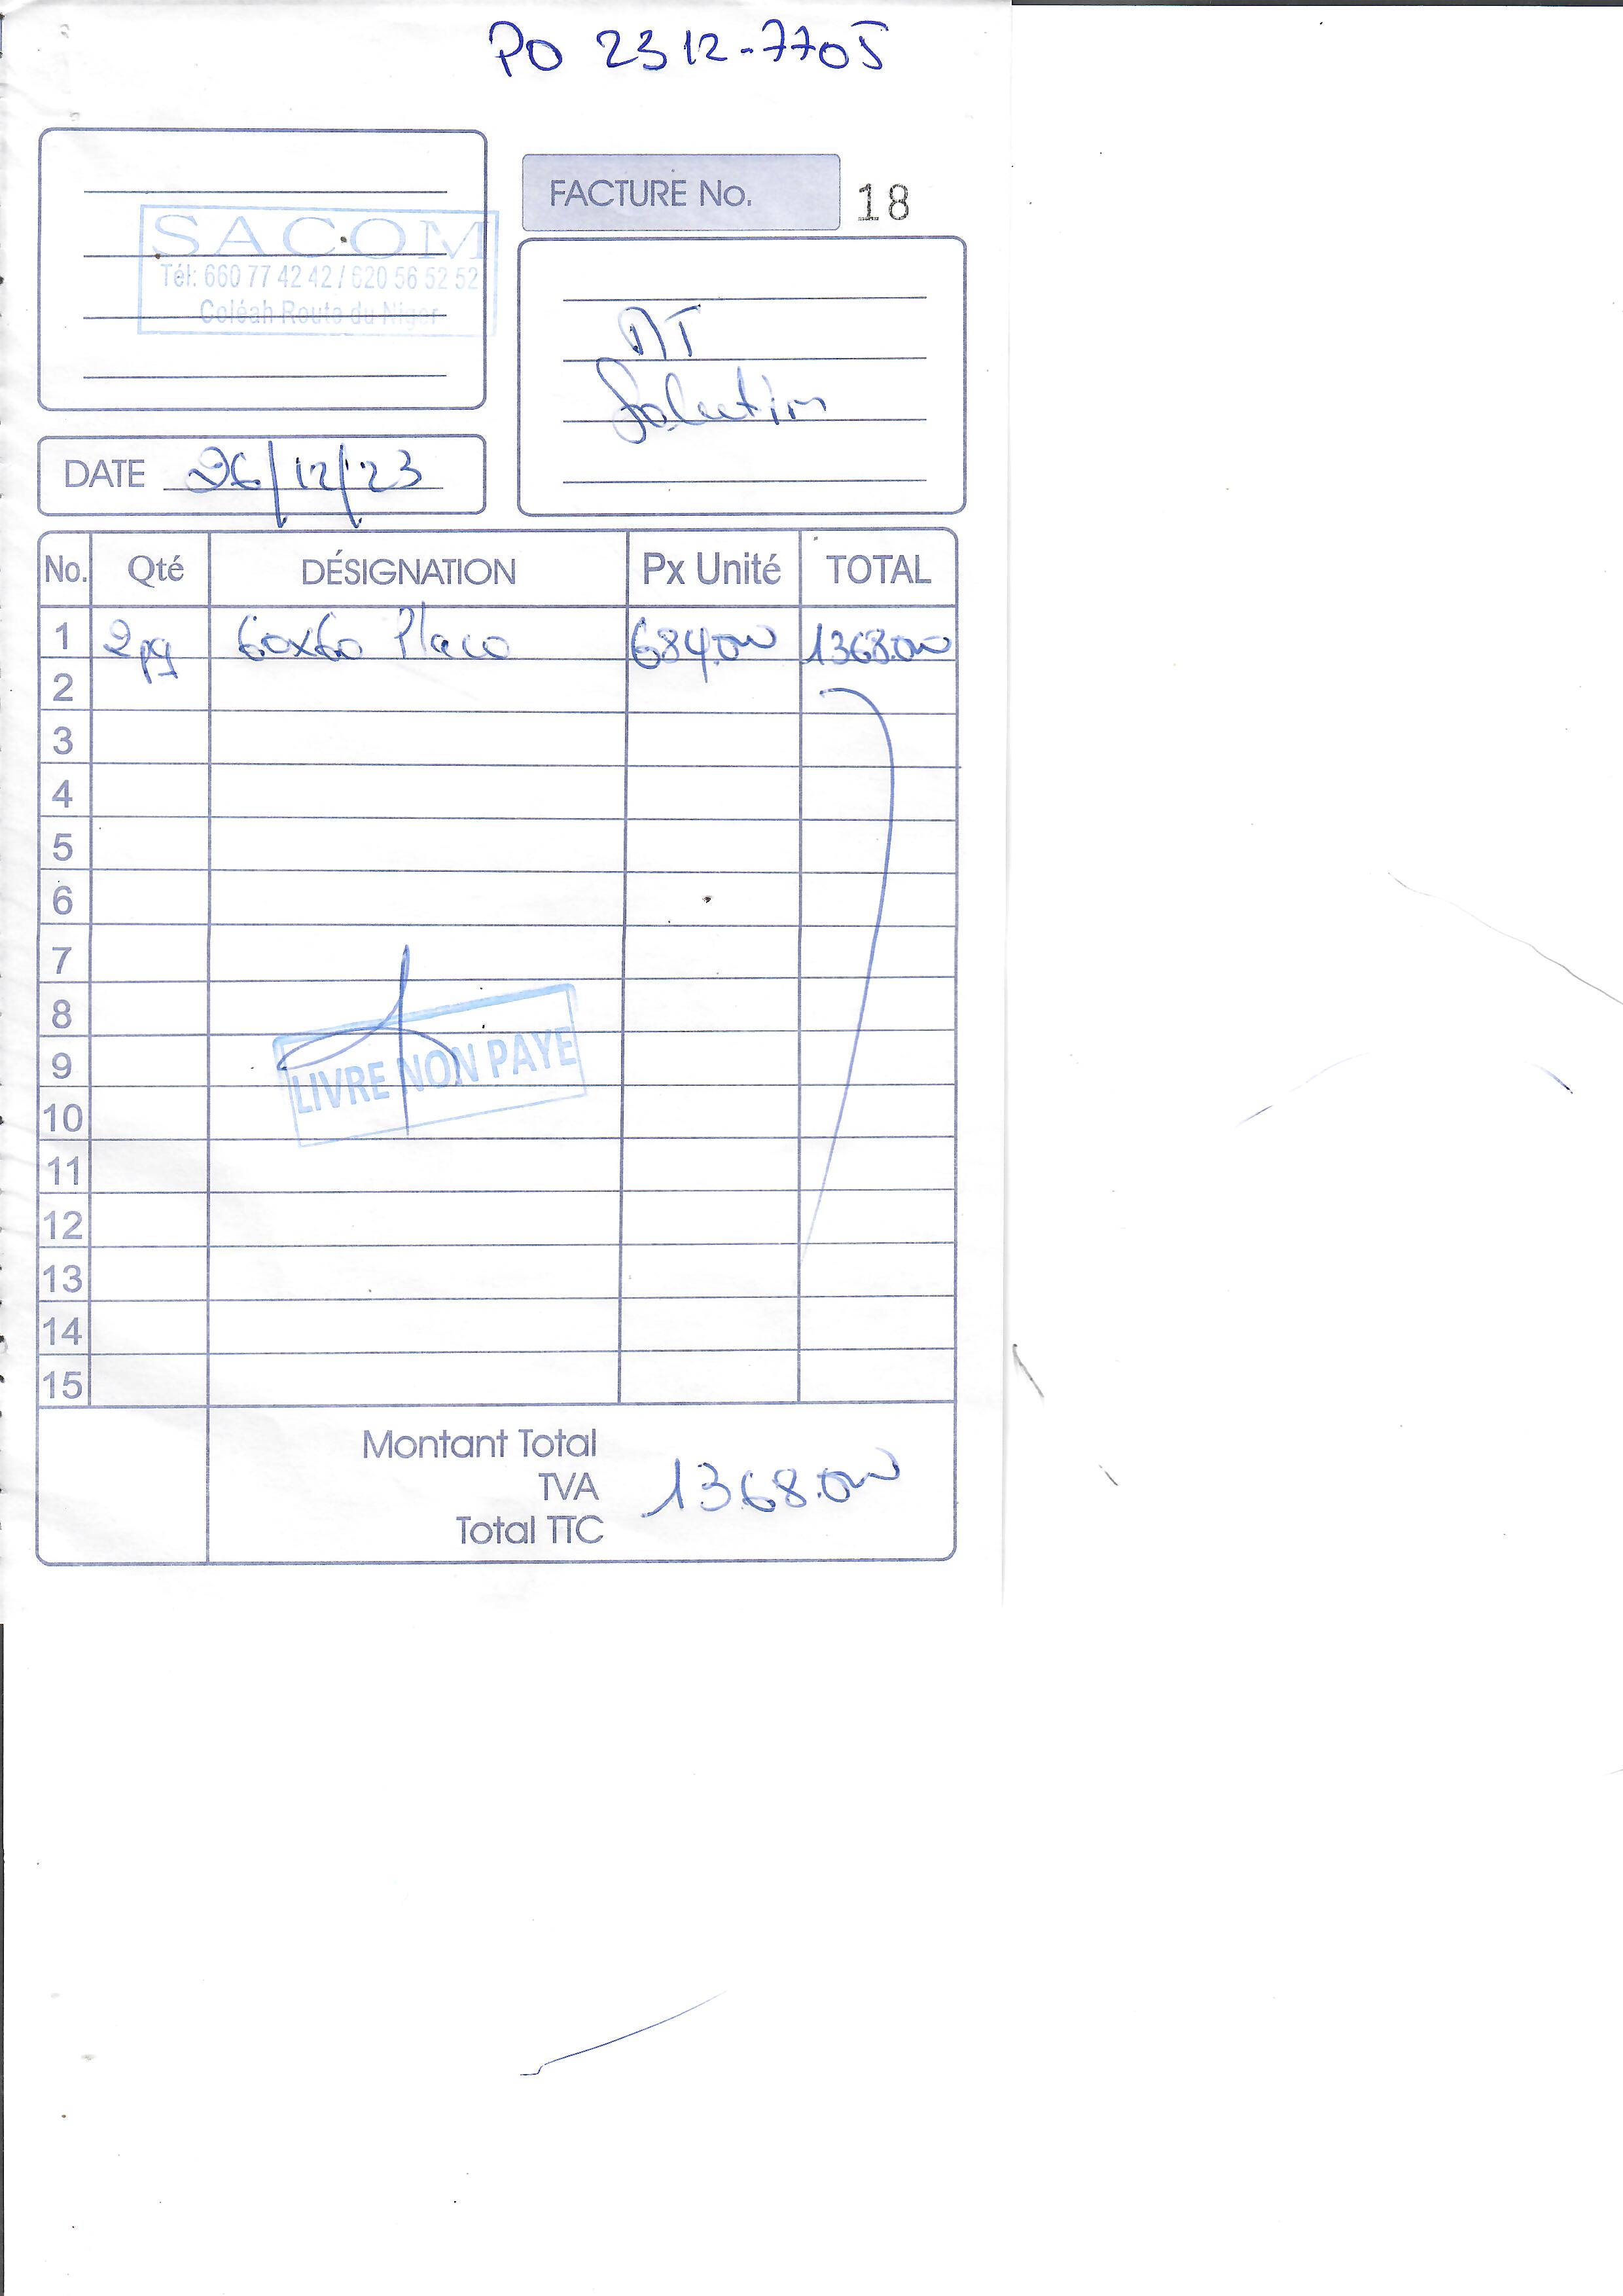 PO 2312-7705
FACTURE No. 18
SACOM
Tél: 660 77 42 42 / 620 56 52 52
Coléah Route du Niger
Solution
DATE 26/12/23
No. Qté DÉSIGNATION Px Unité TOTAL
1 60x60 Placo 684.000 1368.000
2
3
4
5
6
7
8
9
LIVRE NON PAYE
10
11
12
13
14
15
Montant Total
TVA 1368.000
Total TTC